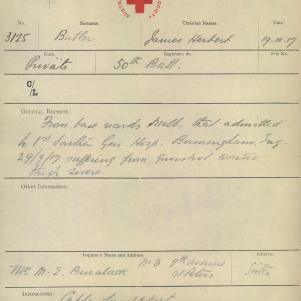 No.
Surname.
Christian Names.
3125 Butler James Herbert 19.10.17
Rank. Regiment, &c. File No.
Private 50th Batt.
C/L
OFFICIAL REPORTS:
From base records Melb. that admitted
to 1st Southern Gen. Hosp. Birmingham, Eng.
29/9/17 suffering from gunshot wound
thigh severe
Other Information:
Inquirer's Name and Address.
Relation.
Mrs M. E. 9th Avenue
St Peters Sister
Instructions:
Cable for report